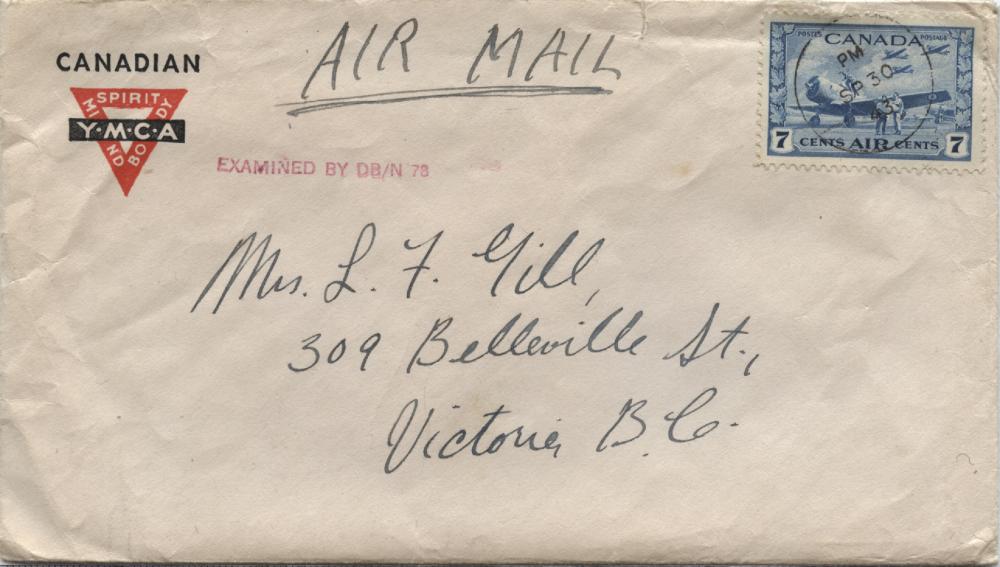 AIR MAIL
CANADIAN
SPIRIT
MIND
BODY
Y·M·C·A
EXAMINED BY DB/N 78
POSTES POSTAGE
CANADA
7 CENTS AIR CENTS 7
PM
SP 30
43
Mrs. L. F. Gill,
309 Belleville St.,
Victoria B.C.